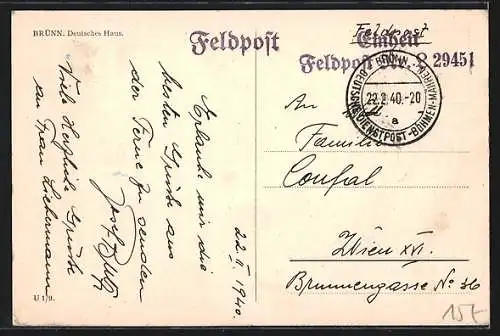 BRÜNN. Deutsches Haus.
Feldpost
Feldpost
Einheit
Feldpost 29451
BRÜNN
DEUTSCHE DIENSTPOST-BÖHMEN-MÄHREN
22.2.40.-20
a
An
Familie
Wien XVI.
Brunnengasse No 36
22. II. 1940.
Erlaube mir die
besten Grüße aus
der Ferne zu senden
Josef
Viele herzliche Grüße
an Frau Liebermann
U 1/9.
15E